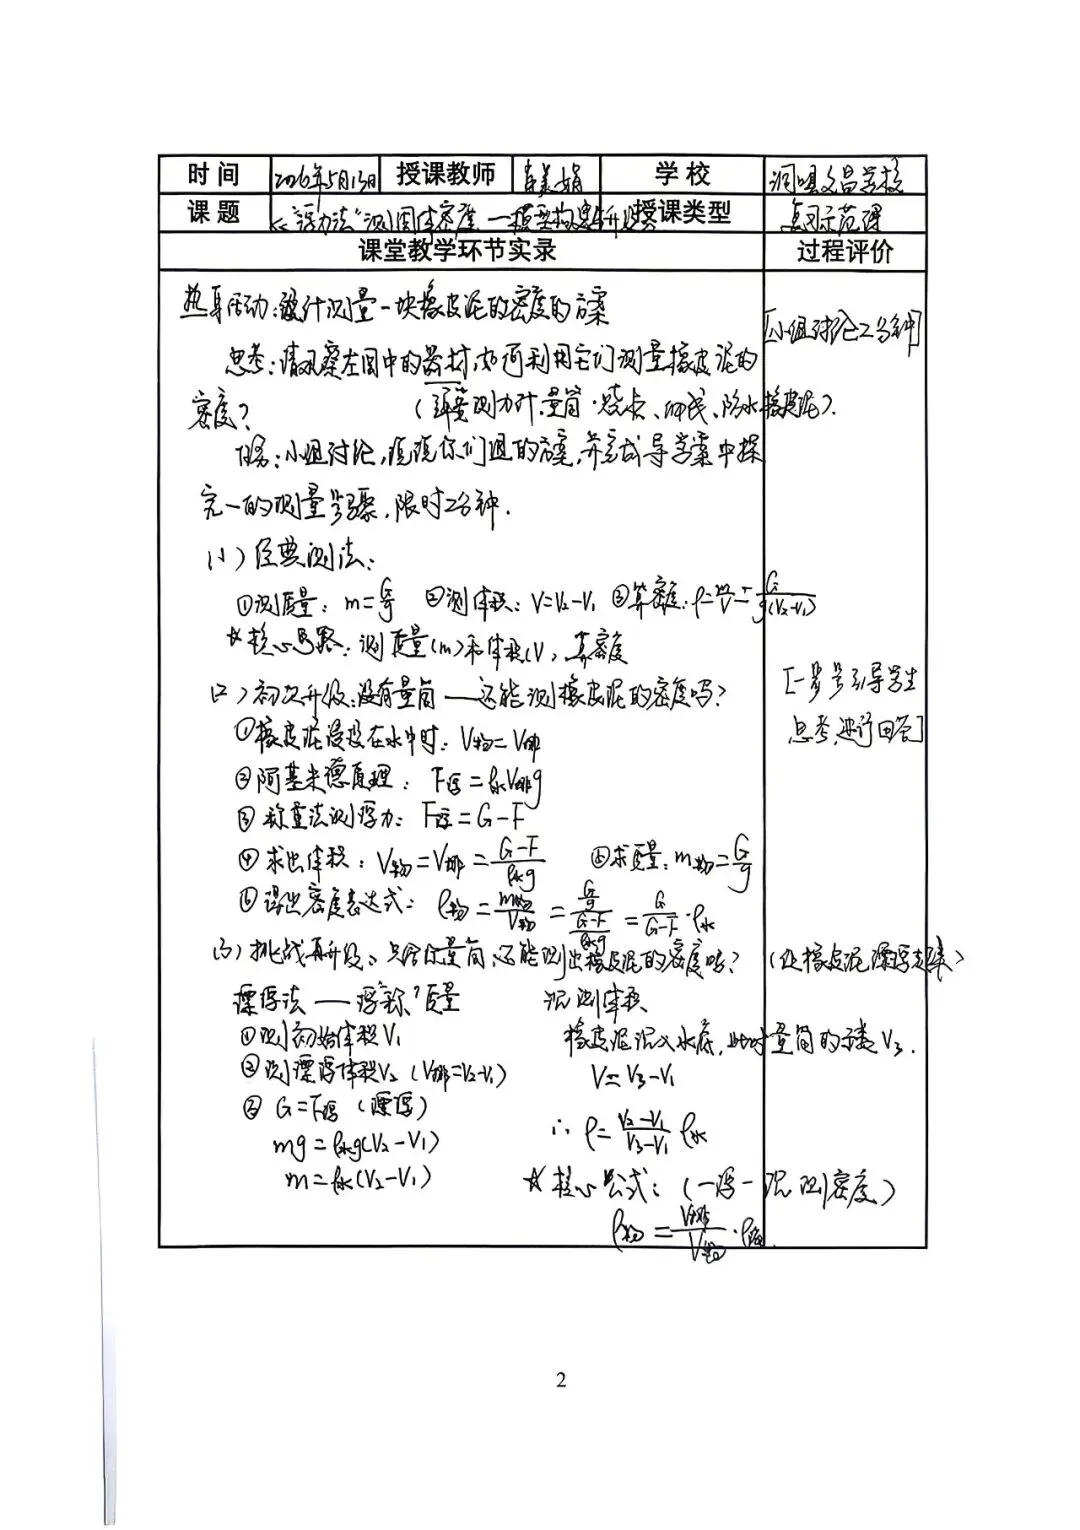 时间 2026年5月13日 授课教师 美娟 学校 文昌学校
课题 《"浮力法"测固体密度——模型构建与升级》 授课类型 复习示范课
课堂教学环节实录 过程评价
热身活动:设计测量一块橡皮泥的密度的方案
[小组讨论2分钟]
思考:请观察左图中的器材,如何利用它们测量橡皮泥的
密度? (弹簧测力计、量筒、烧杯、细线、防水橡皮泥).
任务:小组讨论,说说你们组的方案,并完成导学案中探
究一的测量步骤,限时2分钟.
(一)经典测法:
①测质量: m=G/g ②测体积: V=V₂-V₁ ③算密度: ρ=m/V=G/g(V₂-V₁)
☆核心思路:测质量(m)和体积(V),算密度
(二)初次升级:没有量筒——还能测橡皮泥的密度吗?
[一步步引导学生
思考,进行回答]
①橡皮泥浸没在水中时: V物=V排
②阿基米德原理: F浮=ρ水V排g
③称重法测浮力: F浮=G-F
④求出体积: V物=V排=G-F/ρ水g ⑤求质量: m物=G/g
⑥得出密度表达式: ρ物=m物/V物=G/g/G-F/ρ水g=G/G-F·ρ水
(三)挑战再升级:只给你量筒,还能测出橡皮泥的密度吗? (让橡皮泥漂浮起来)
漂浮法——浮"称"质量 沉测体积
①测初始体积V₁ 橡皮泥沉入水底,此时量筒的示数V₃.
②测漂浮体积V₂ (V排=V₂-V₁) V=V₃-V₁
③ G=F浮 (漂浮) ∴ρ=V₂-V₁/V₃-V₁ ρ水
mg=ρ水g(V₂-V₁)
m=ρ水(V₂-V₁) ☆核心公式: (一浮一沉测密度)
ρ物=V排/V物·ρ液
2